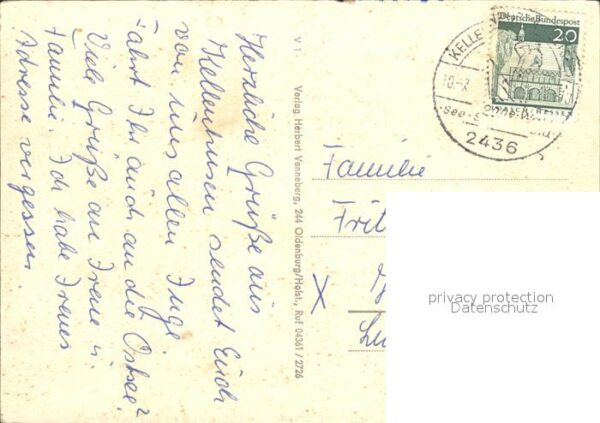 Herzliche Grüße aus
Kellenhusen sendet Euch
von uns allen Inge.
Fahrt Ihr auch an die Ostsee?
Viele Grüße an Irene u.
Familie. Ich habe Irenes
Adresse vergessen.
V 1
Verlag Herbert Venneberg, 244 Oldenburg/Holst., Ruf 04361 / 2726
Deutsche Bundespost
20
KELLE
2436
Familie
Frit
X
privacy protection
Datenschutz